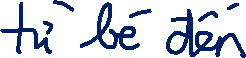 từ bé đến